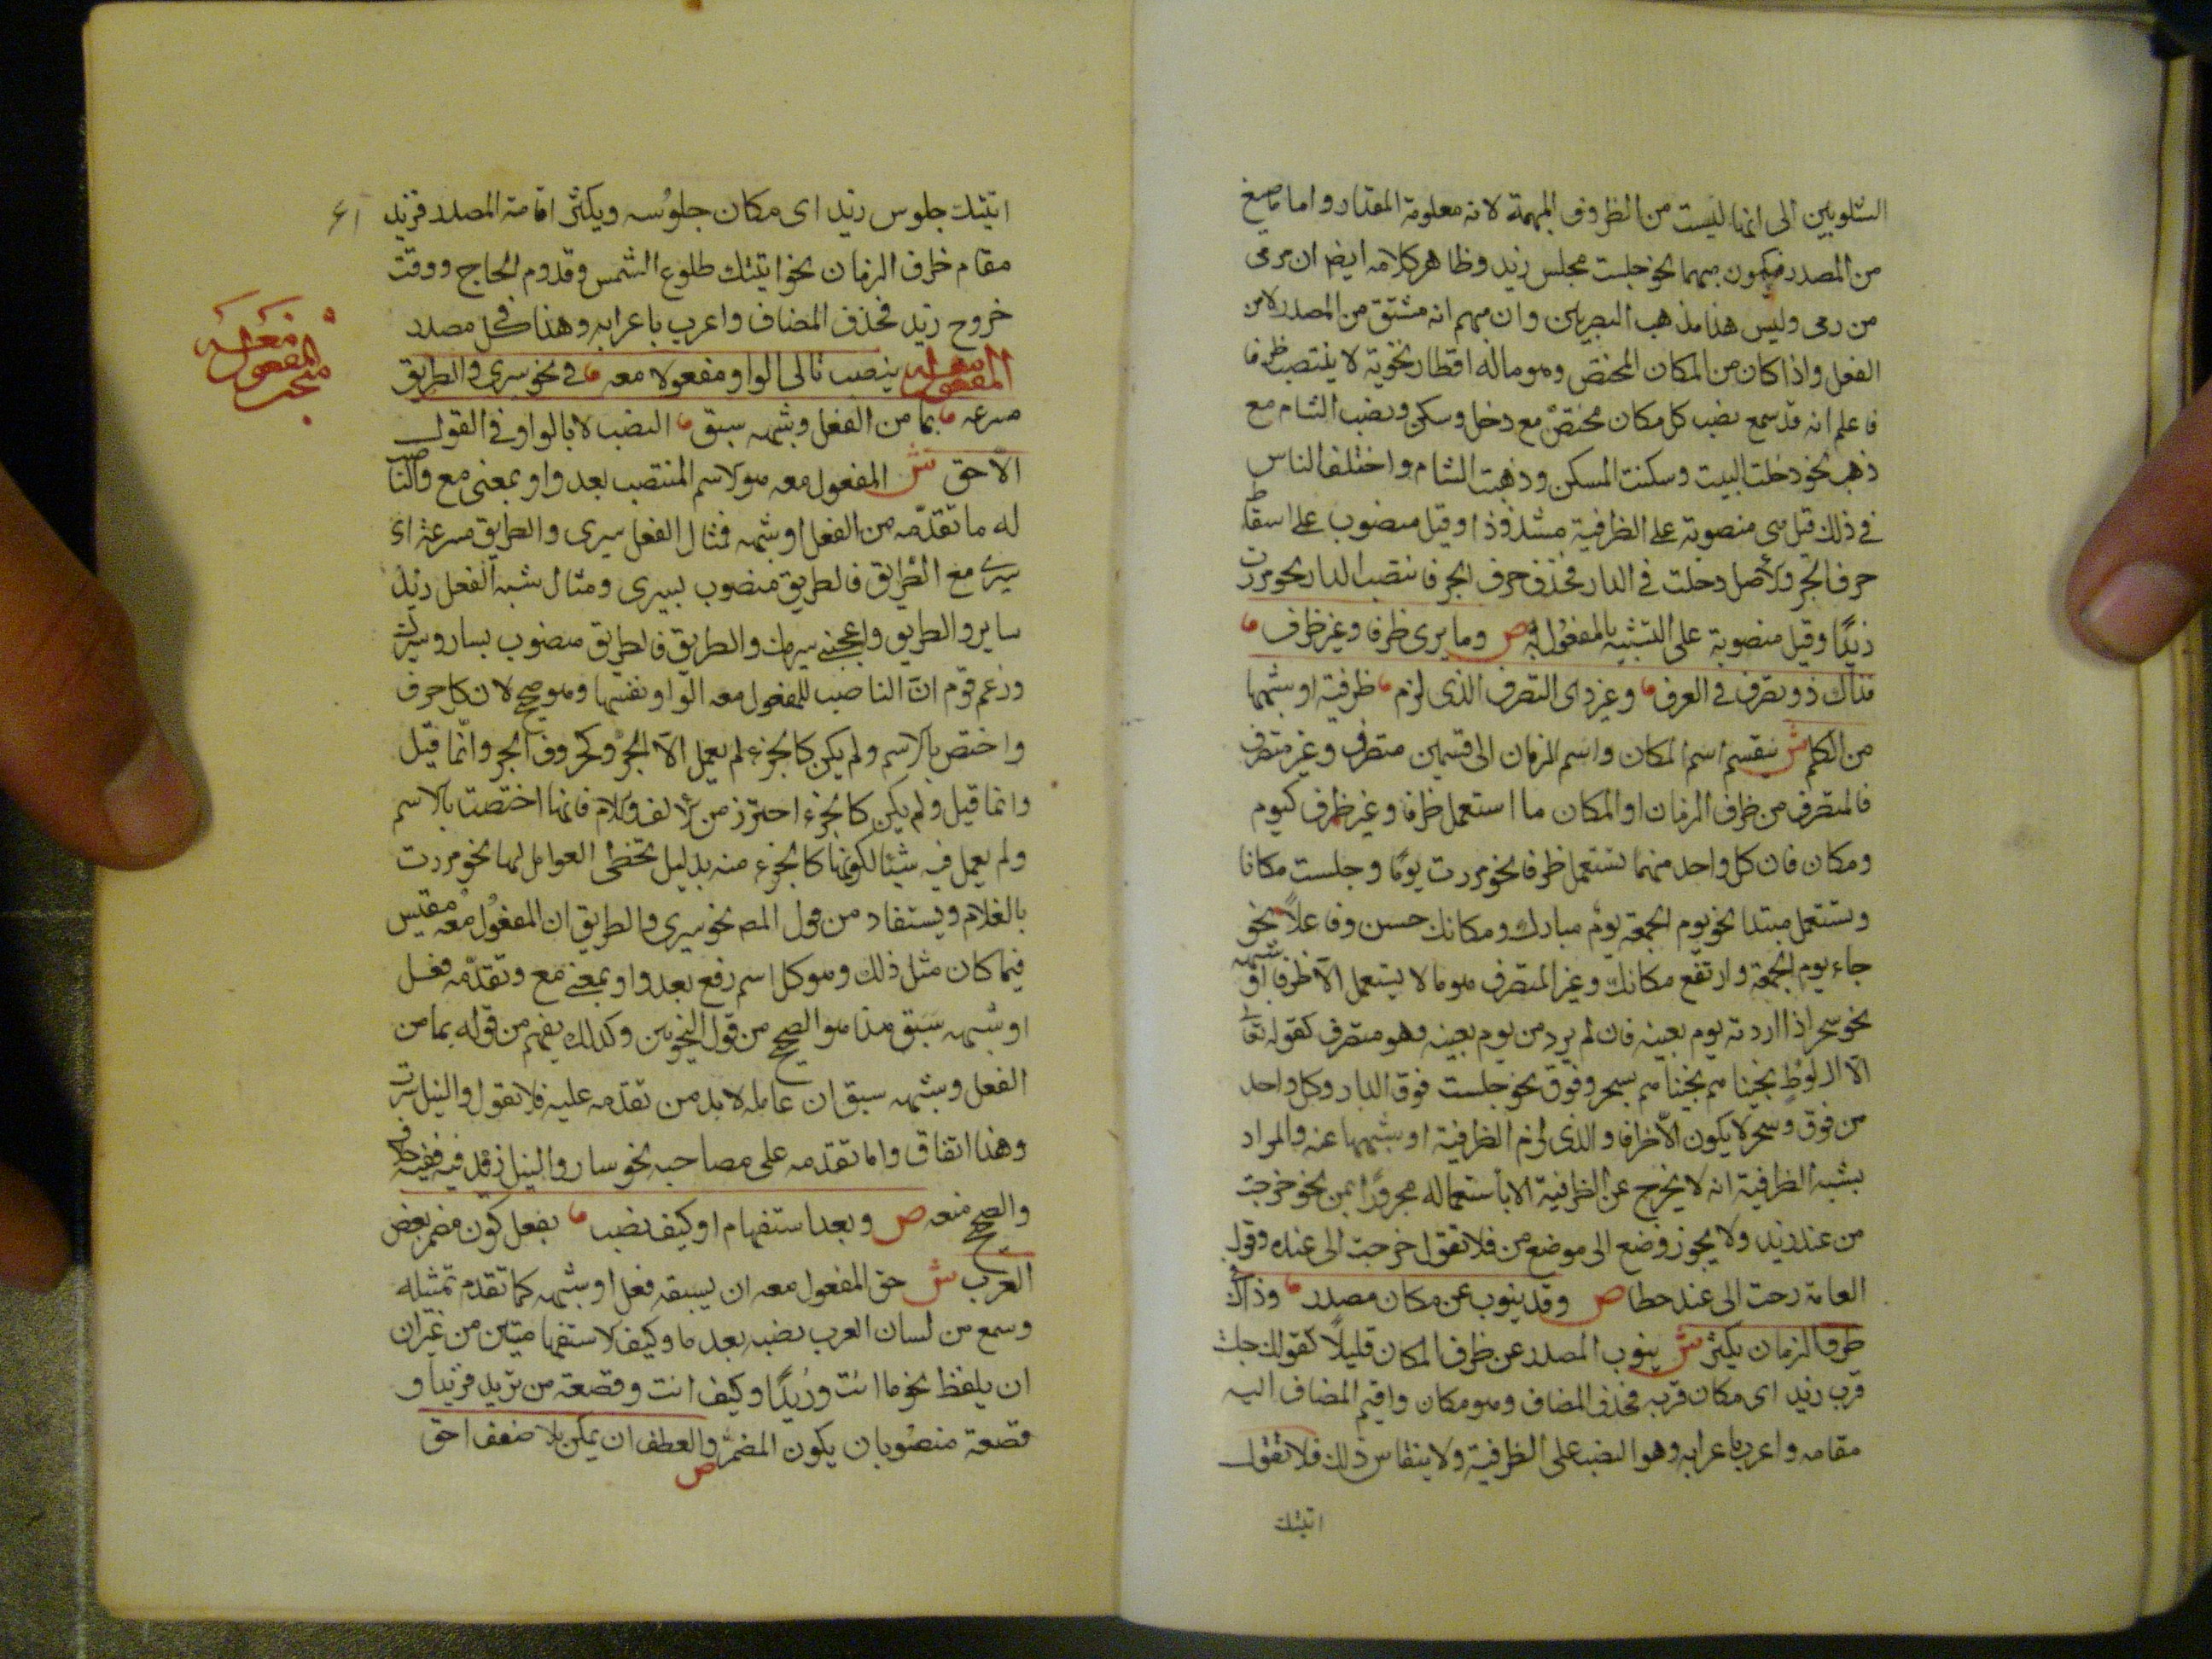 الشلوبين الى انها ليست من الظروف المبهمة لانه معلومة المقدار واما ما صيغ
من المصدر فيكون مبهما نحو جلست مجلس زيد وظاهر كلامه ايضا ان مرمى
من رمى وليس هذا مذهب البصريين وان مبهم انه مشتق من المصدر لا من
الفعل واذا كان من المكان المختص وهو ما له اقطار نحوية لا ينتصب ظرفا
فاعلم انه قد سمع نصب كل مكان مختص مع دخل وسكن ونصب الشام مع
ذهب نحو دخلت البيت وسكنت المسكن وذهبت الشام واختلف الناس
في ذلك قيل هي منصوبة على الظرفية شذوذا وقيل منصوب على اسقاط
حرف الجر والاصل دخلت في الدار فحذف حرف الجر فانتصب الدار نحو مررت
زيدا وقيل منصوبة على التشبيه بالمفعول به ص وما يرى ظرفا وغير ظرف
فذاك ذو تصرف في العرف وغير ذى التصرف الذى لزم ظرفية او شبهها
من الكلم ش ينقسم اسم المكان واسم الزمان الى قسمين متصرف وغير متصرف
فالمتصرف من ظرف الزمان او المكان ما استعمل ظرفا وغير ظرف كيوم
ومكان فان كل واحد منهما تستعمل ظرفا نحو مررت يوما وجلست مكانا
وتستعمل مبتدا نحو يوم الجمعة يوم مبارك ومكانك حسن وفاعلا نحو
جاء يوم الجمعة وارتفع مكانك وغير المتصرف هو ما لا يستعمل الا ظرفا او شبهه
نحو سحر اذا اردته يوم بعينه فان لم يرد من يوم بعينه وهو متصرف كقوله تعالى
الا ال لوط نجينا هم نجينا هم بسحر وفوق نحو جلست فوق الدار وكل واحد
من فوق وسحر لا يكون الا ظرفا والذى لزم الظرفية او شبهها عند والمراد
بشبه الظرفية انه لا يخرج عن الظرفية الا باستعماله مجرورا بمن نحو خرجت
من عند زيد ولا يجوز وضع الى موضع من فلا تقول خرجت الى عنده وقول
العامة رحت الى عند خطا ص وقد ينوب عن مكان مصدر وذاك في
ظرف الزمان يكثر ش ينوب المصدر عن ظرف المكان قليلا كقولك جلست
قرب زيد اى مكان قربه فحذف المضاف وهو مكان واقيم المضاف اليه
مقامه واعرب باعرابه وهو النصب على الظرفية ولا ينقاس ذلك فلا تقول
اتيتك
اتيتك جلوس زيد اى مكان جلوسه ويكثر اقامة المصدر فزيد
مقام ظرف الزمان نحو اتيتك طلوع الشمس وقدوم الحاج ووقت
خروج زيد فحذف المضاف واعرب باعرابه وهذا في كل مصدر
المفعول معه ينصب تالى الواو مفعولا معه في نحو سيرى والطريق
مسرعه بما من الفعل وشبهه سبق النصب لا بالواو في القول
الاحق ش المفعول معه هو الاسم المنتصب بعد واو بمعنى مع والناصب
له ما تقدمه من الفعل او شبهه فمثال الفعل سيرى والطريق مسرعة اى
سيرى مع الطريق فالطريق منصوب بسيرى ومثال شبه الفعل زيد
ساير والطريق واعجبنى سيرك والطريق فالطريق منصوب بساير وسيرك
وزعم قوم ان الناصب للمفعول معه الواو نفسها وهو صحيح لان كل حرف
واختص بالاسم ولم يكن كالجزء لم يعمل الا الجر وكحروف الجر وانما قيل
وانما قيل ولم يكن كالجزء احترز من الالف واللام فانها اختصت بالاسم
ولم يعمل فيه شيئا لكونها كالجزء منه بدليل تخطى العوامل لها نحو مررت
بالغلام ويستفاد من قول المص نحو سيرى والطريق ان المفعول معه مقيس
فيما كان مثل ذلك وهو كل اسم رفع بعد واو بمعنى مع وتقدمه فعل
او شبهه سبق هذا هو الصحيح من قول النحويين وكذلك يفهم من قوله بما من
الفعل وشبهه سبق ان عامله لا بد من تقدمه عليه فلا تقول والنيل سرت
وهذا اتفاق واما تقدمه على مصاحبه نحو سار والنيل زيد ففيه خلاف
والصحيح منعه ص وبعد استفهام او كيف نصب بفعل كون مضمر بعض
العرب ش حق المفعول معه ان يسبقه فعل او شبهه كما تقدم تمثيله
وسمع من لسان العرب نصبه بعد ما وكيف الاستفهاميتين من غير ان
ان يلفظ نحو ما انت وزيدا وكيف انت وقصعة من ثريد فزيدا و
قصعة منصوبان يكون المضمر ص والعطف ان يمكن بلا ضعف احق
المفعول معه